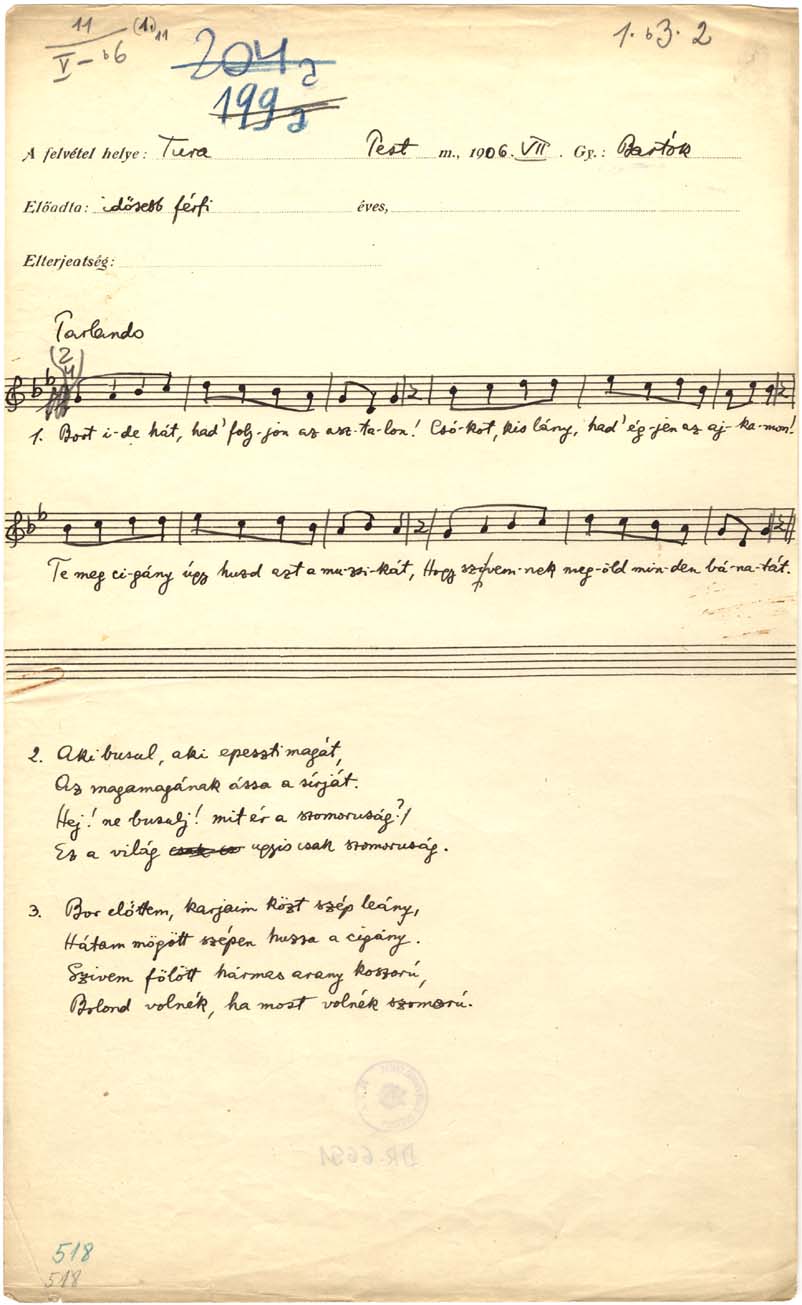 11 (1.) 11
V – b6
1. b3. 2
204a
199a
A felvétel helye: Tura Pest m., 1906. VII. Gy.: Bartók
Előadta: idősebb férfi éves,
Elterjeatség:
Parlando
(2/4)
1. Bort i-de hát, had' foly-jon az asz-ta-lon! Csó-kot, kis lány, had' ég-jen az aj-ka-mon!
Te meg ci-gány úgy huzd azt a mu-zsi-kát, Hogy szívem-nek meg-öld min-den bá-na-tát.
2. Aki busul, aki epeszti magát,
Az magamagának ássa a sírját.
Hej! ne busulj! mit ér a szomoruság?/
Ez a világ ugyis csak szomoruság.
3. Bor előttem, karjaim közt szép leány,
Hátam mögött szépen huzza a cigány.
Szivem fölött hármas arany koszorú,
Bolond volnék, ha most volnék szomorú.
DR. 6651
518
518